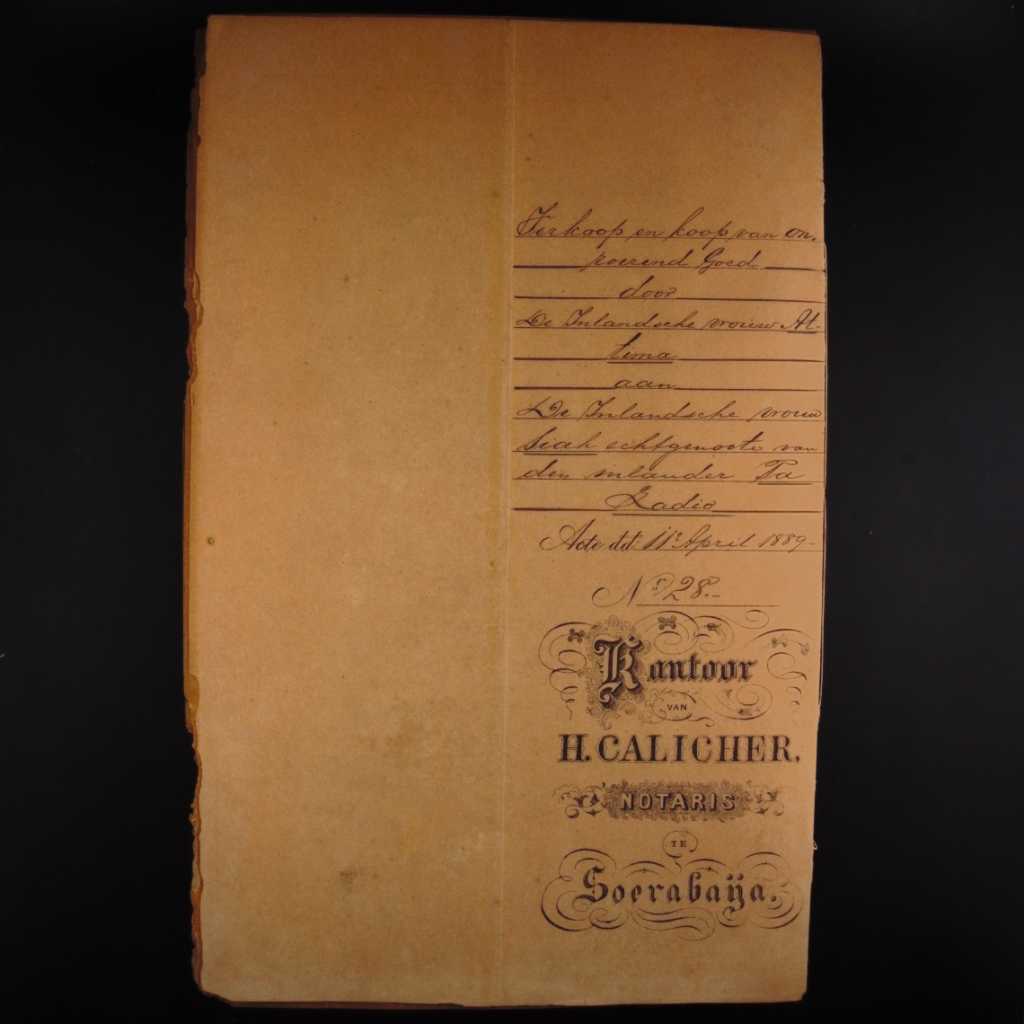 Verkoop en koop van on-
roerend Goed
door
De Inlandsche vrouw At-
tima
aan
De Inlandsche vrouw
Siah echtgenoote van
den inlander Pa
Radio
Acte dd: 11e April 1889-
No 28.-
Kantoor
VAN
H. CALICHER.
NOTARIS
TE
Soerabaija.